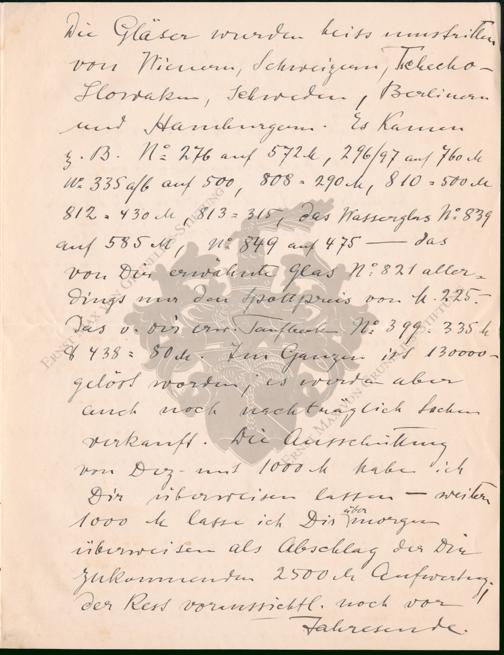 Die Gläser wurden heiss umstritten
von Wienern, Schweizern, Tchecho-
Slowaken, Schweden, Berlinern
und Hamburgern. Es kamen
z. B. No 276 auf 572 M, 296/97 auf 760 M
No 335 a/b auf 500, 808 = 290 M, 810 = 500 M
812 = 430 M, 813 = 315, das Wasserglas No 839
auf 585 M, No 849 auf 475 — das
von Dir erwähnte Glas No 821 aller-
dings nur den Spottpreis von M. 225.-
Das v. Dir erw. No 399 335 M
438 = 80 M. Im Ganzen ist 130000-
gelöst worden, es werden aber
auch noch nachträglich Sachen
verkauft. Die Ausschüttung
von Dez. mit 1000 M habe ich
Dir überweisen lassen — weitere
1000 M lasse ich Dir übermorgen
überweisen als Abschlag der Dir
zukommenden 2500 M Aufwertung,
der Rest voraussichtl. noch vor
Jahresende.
ERNST MAX VON GRUNELIUS-STIFTUNG
ERNST MAX VON GRUNELIUS-STIFTUNG